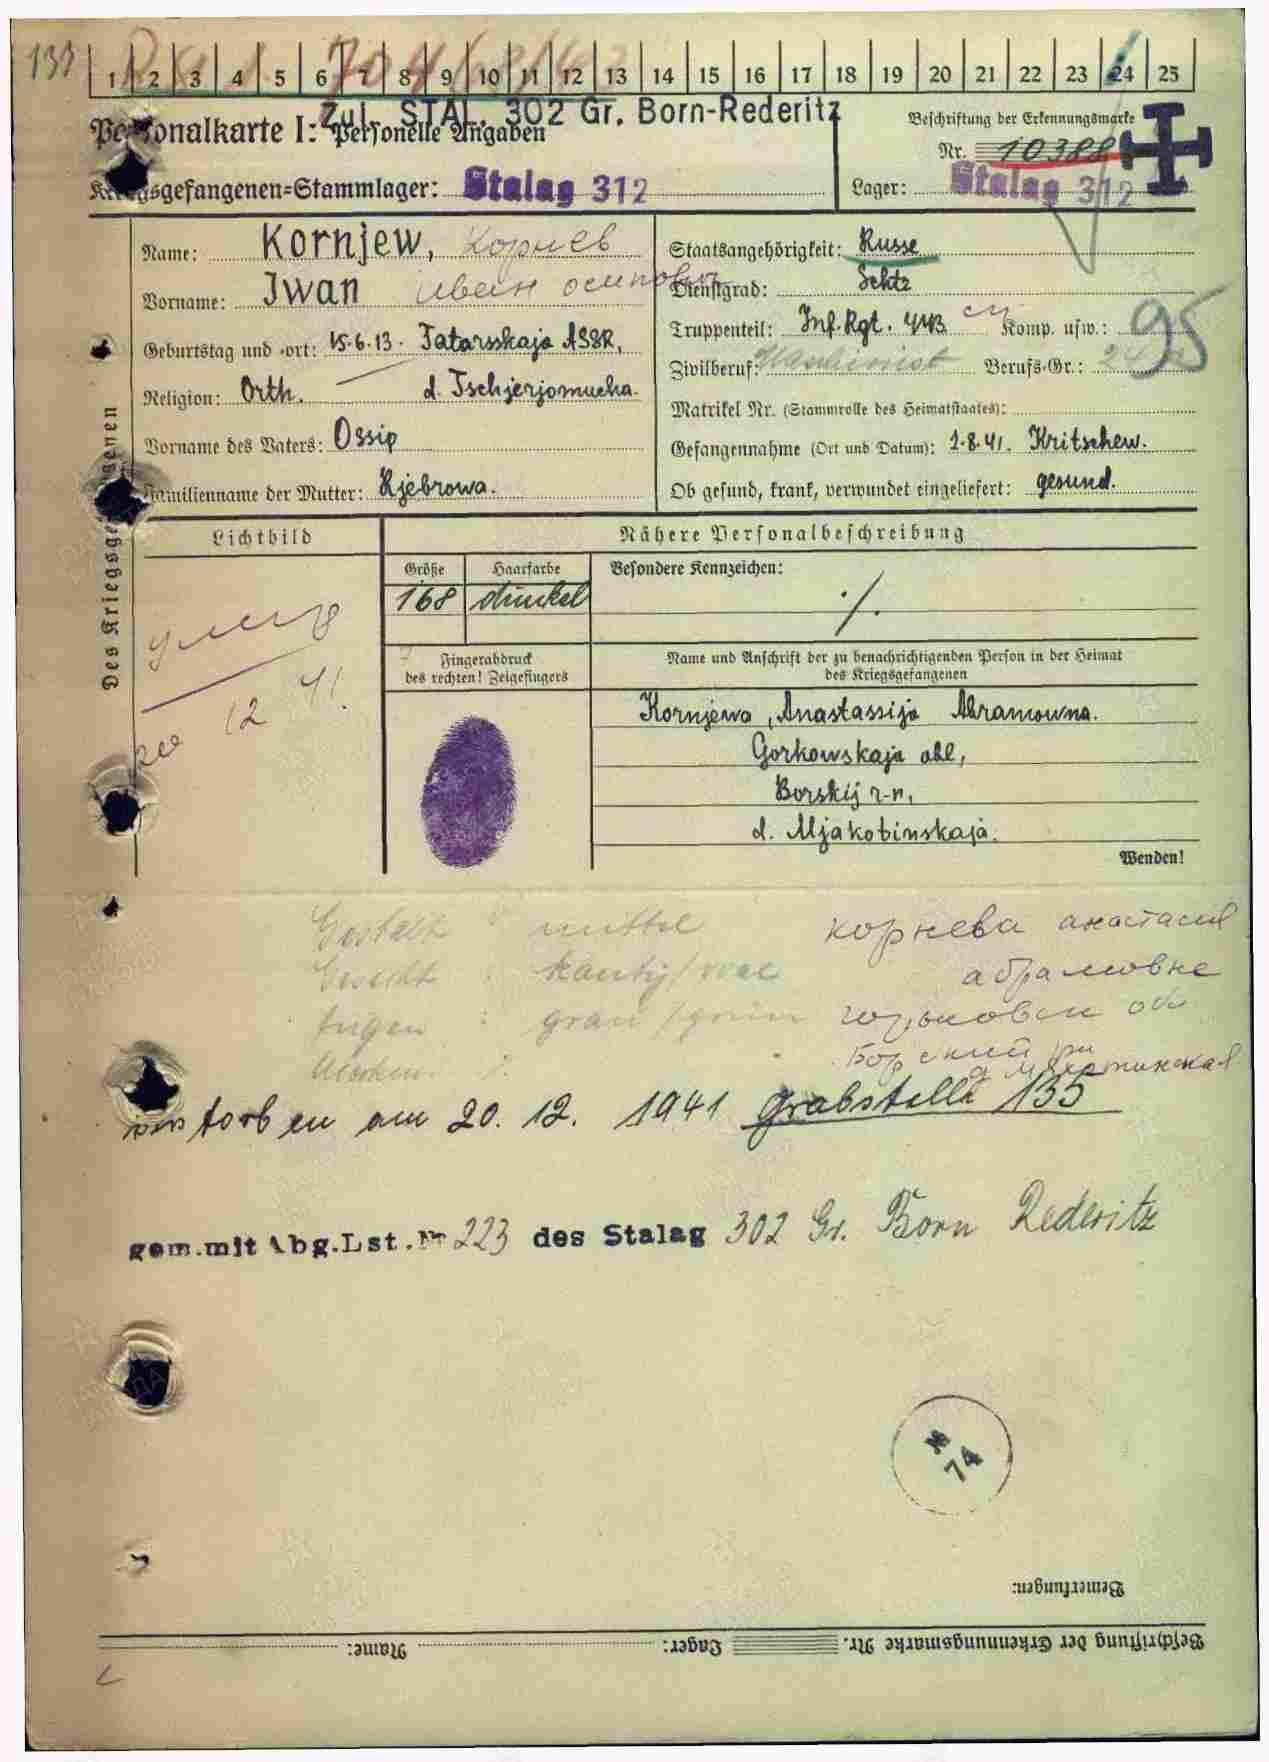 133
1 2 3 4 5 6 7 8 9 10 11 12 13 14 15 16 17 18 19 20 21 22 23 24 25
Zul. STAL. 302 Gr. Born-Rederitz
Personalkarte I: Personelle Angaben
Beschriftung der Erkennungsmarke
Nr. 10388
Kriegsgefangenen=Stammlager: Stalag 312
Lager: Stalag 312
Des Kriegsgefangenen
Name: Kornjew, Корнев
Vorname: Iwan иван осипович
Geburtstag und -ort: 15.6.13. Tatarsskaja ASSR,
Religion: Orth. d. Tschjerjomucha.
Vorname des Vaters: Ossip
Familienname der Mutter: Rjebrowa.
Staatsangehörigkeit: Russe
Dienstgrad: Schtz
Truppenteil: Inf. Rgt. 443 Komp. usw.:
95
Zivilberuf: Maschinist Berufs-Gr.:
Matrikel Nr. (Stammrolle des Heimatstaates):
Gefangennahme (Ort und Datum): 2.8.41. Kritschew.
Ob gesund, krank, verwundet eingeliefert: gesund.
Lichtbild
Nähere Personalbeschreibung
Größe Haarfarbe Besondere Kennzeichen:
168 dunkel ./.
Fingerabdruck
des rechten! Zeigefingers
Name und Anschrift der zu benachrichtigenden Person in der Heimat
des Kriegsgefangenen
Kornjewa, Anastassija Abramowna.
Gorkowskaja obl,
Borskij r-n,
d. Mjakotinskaja.
Wenden!
12 41.
Gestalt : mittel
Gesicht : kantig/oval
Augen : grau/grün
корнева анастасия
абрамовне
горьковск об
Борский рн
verstorben am 20. 12. 1941 Grabstelle 135
gem. mit Abg. Lst. Nr 223 des Stalag 302 Gr. Born Rederitz
M
74
Bemerkungen:
Beschriftung der Erkennungsmarke Nr. Lager: Name: